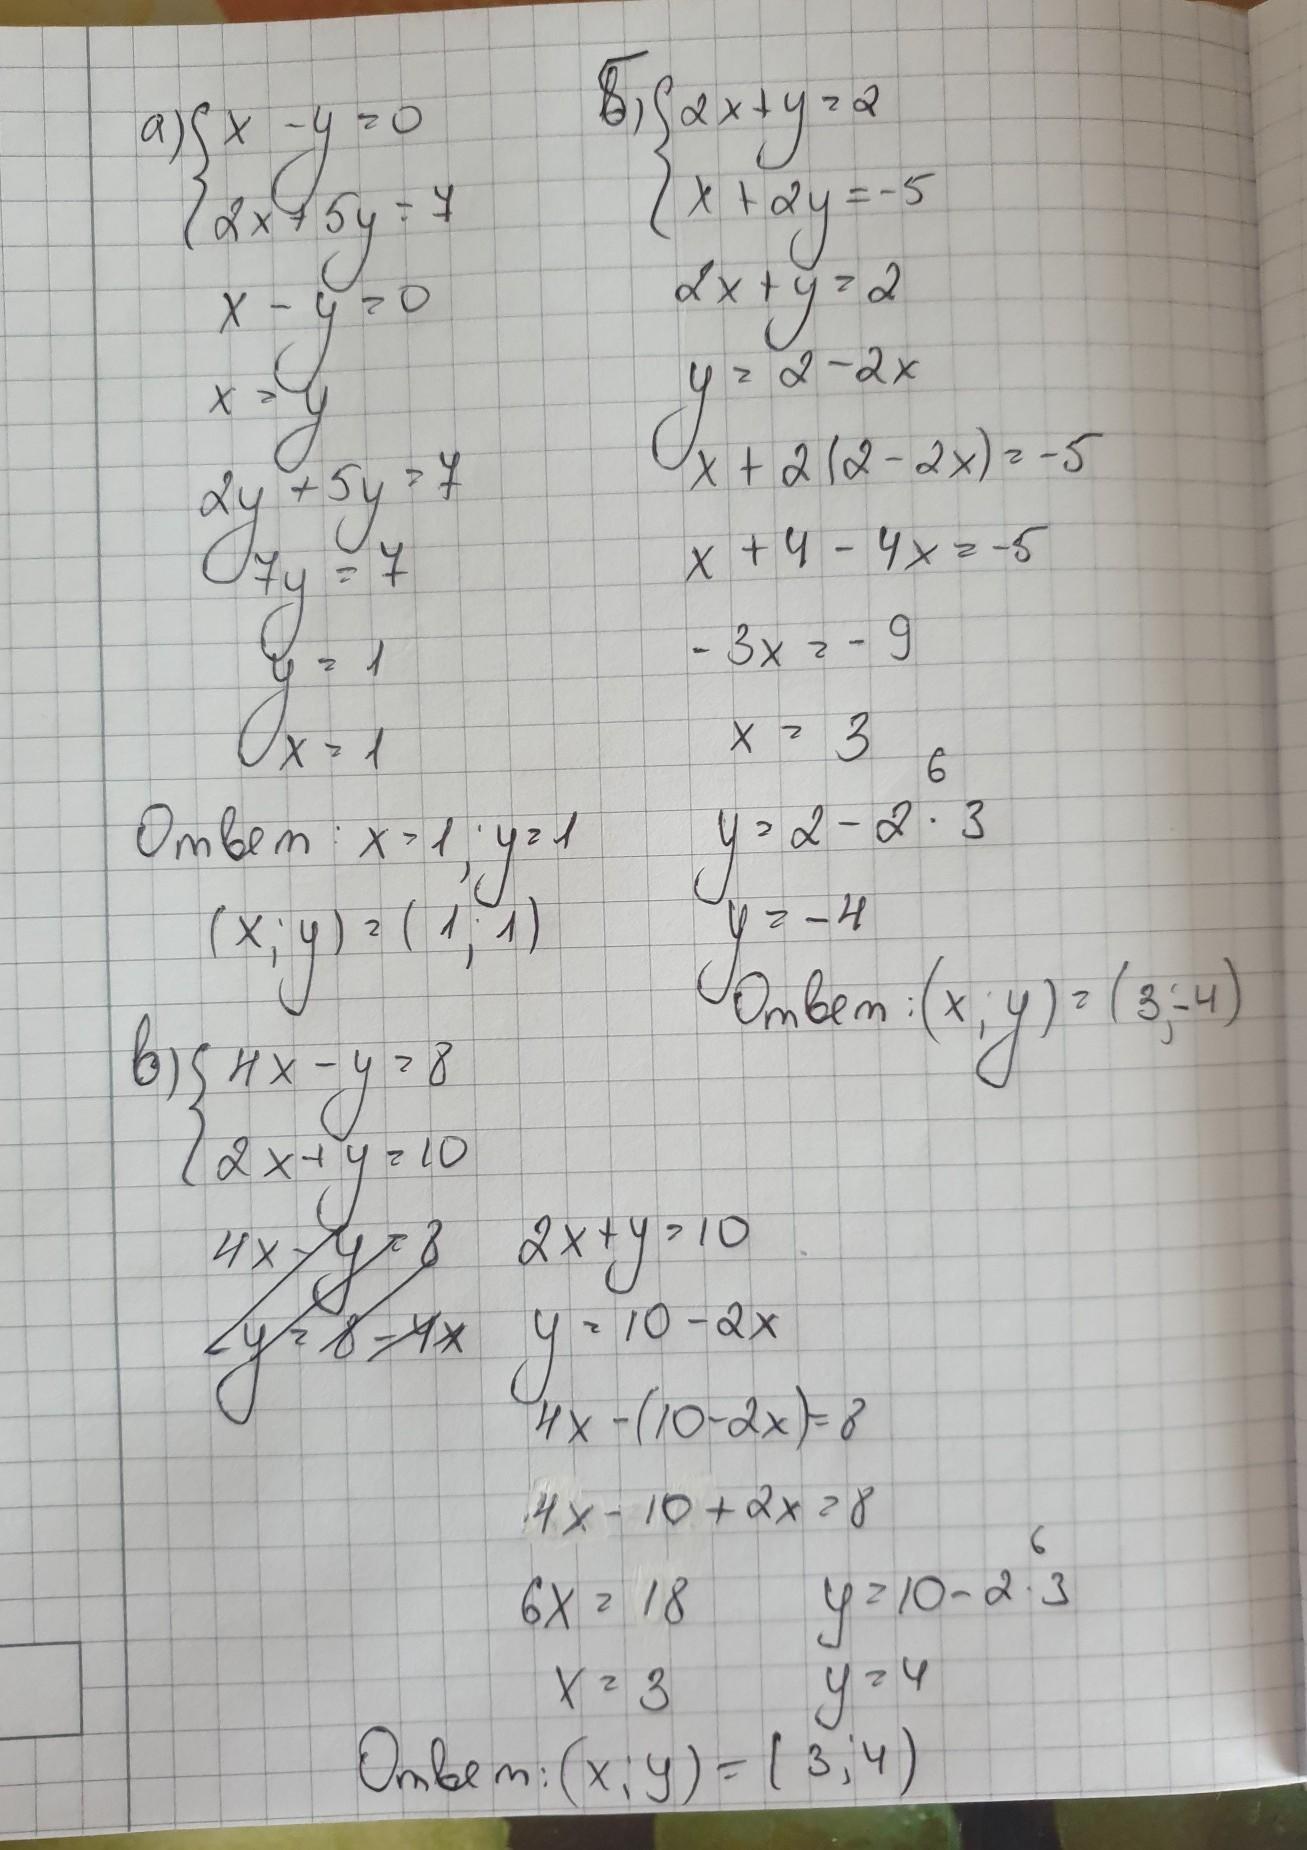 а) { x - y = 0
2x + 5y = 7
x - y = 0
x = y
2y + 5y = 7
7y = 7
y = 1
x = 1
Ответ: x = 1; y = 1
(x; y) = (1; 1)
б) { 2x + y = 2
x + 2y = -5
2x + y = 2
y = 2 - 2x
x + 2(2 - 2x) = -5
x + 4 - 4x = -5
- 3x = - 9
x = 3
6
y = 2 - 2 · 3
y = -4
Ответ: (x; y) = (3; -4)
в) { 4x - y = 8
2x + y = 10
4x - y = 8
-y = 8 - 4x
2x + y = 10
y = 10 - 2x
4x - (10 - 2x) = 8
4x - 10 + 2x = 8
6x = 18
x = 3
6
y = 10 - 2 · 3
y = 4
Ответ: (x; y) = (3; 4)